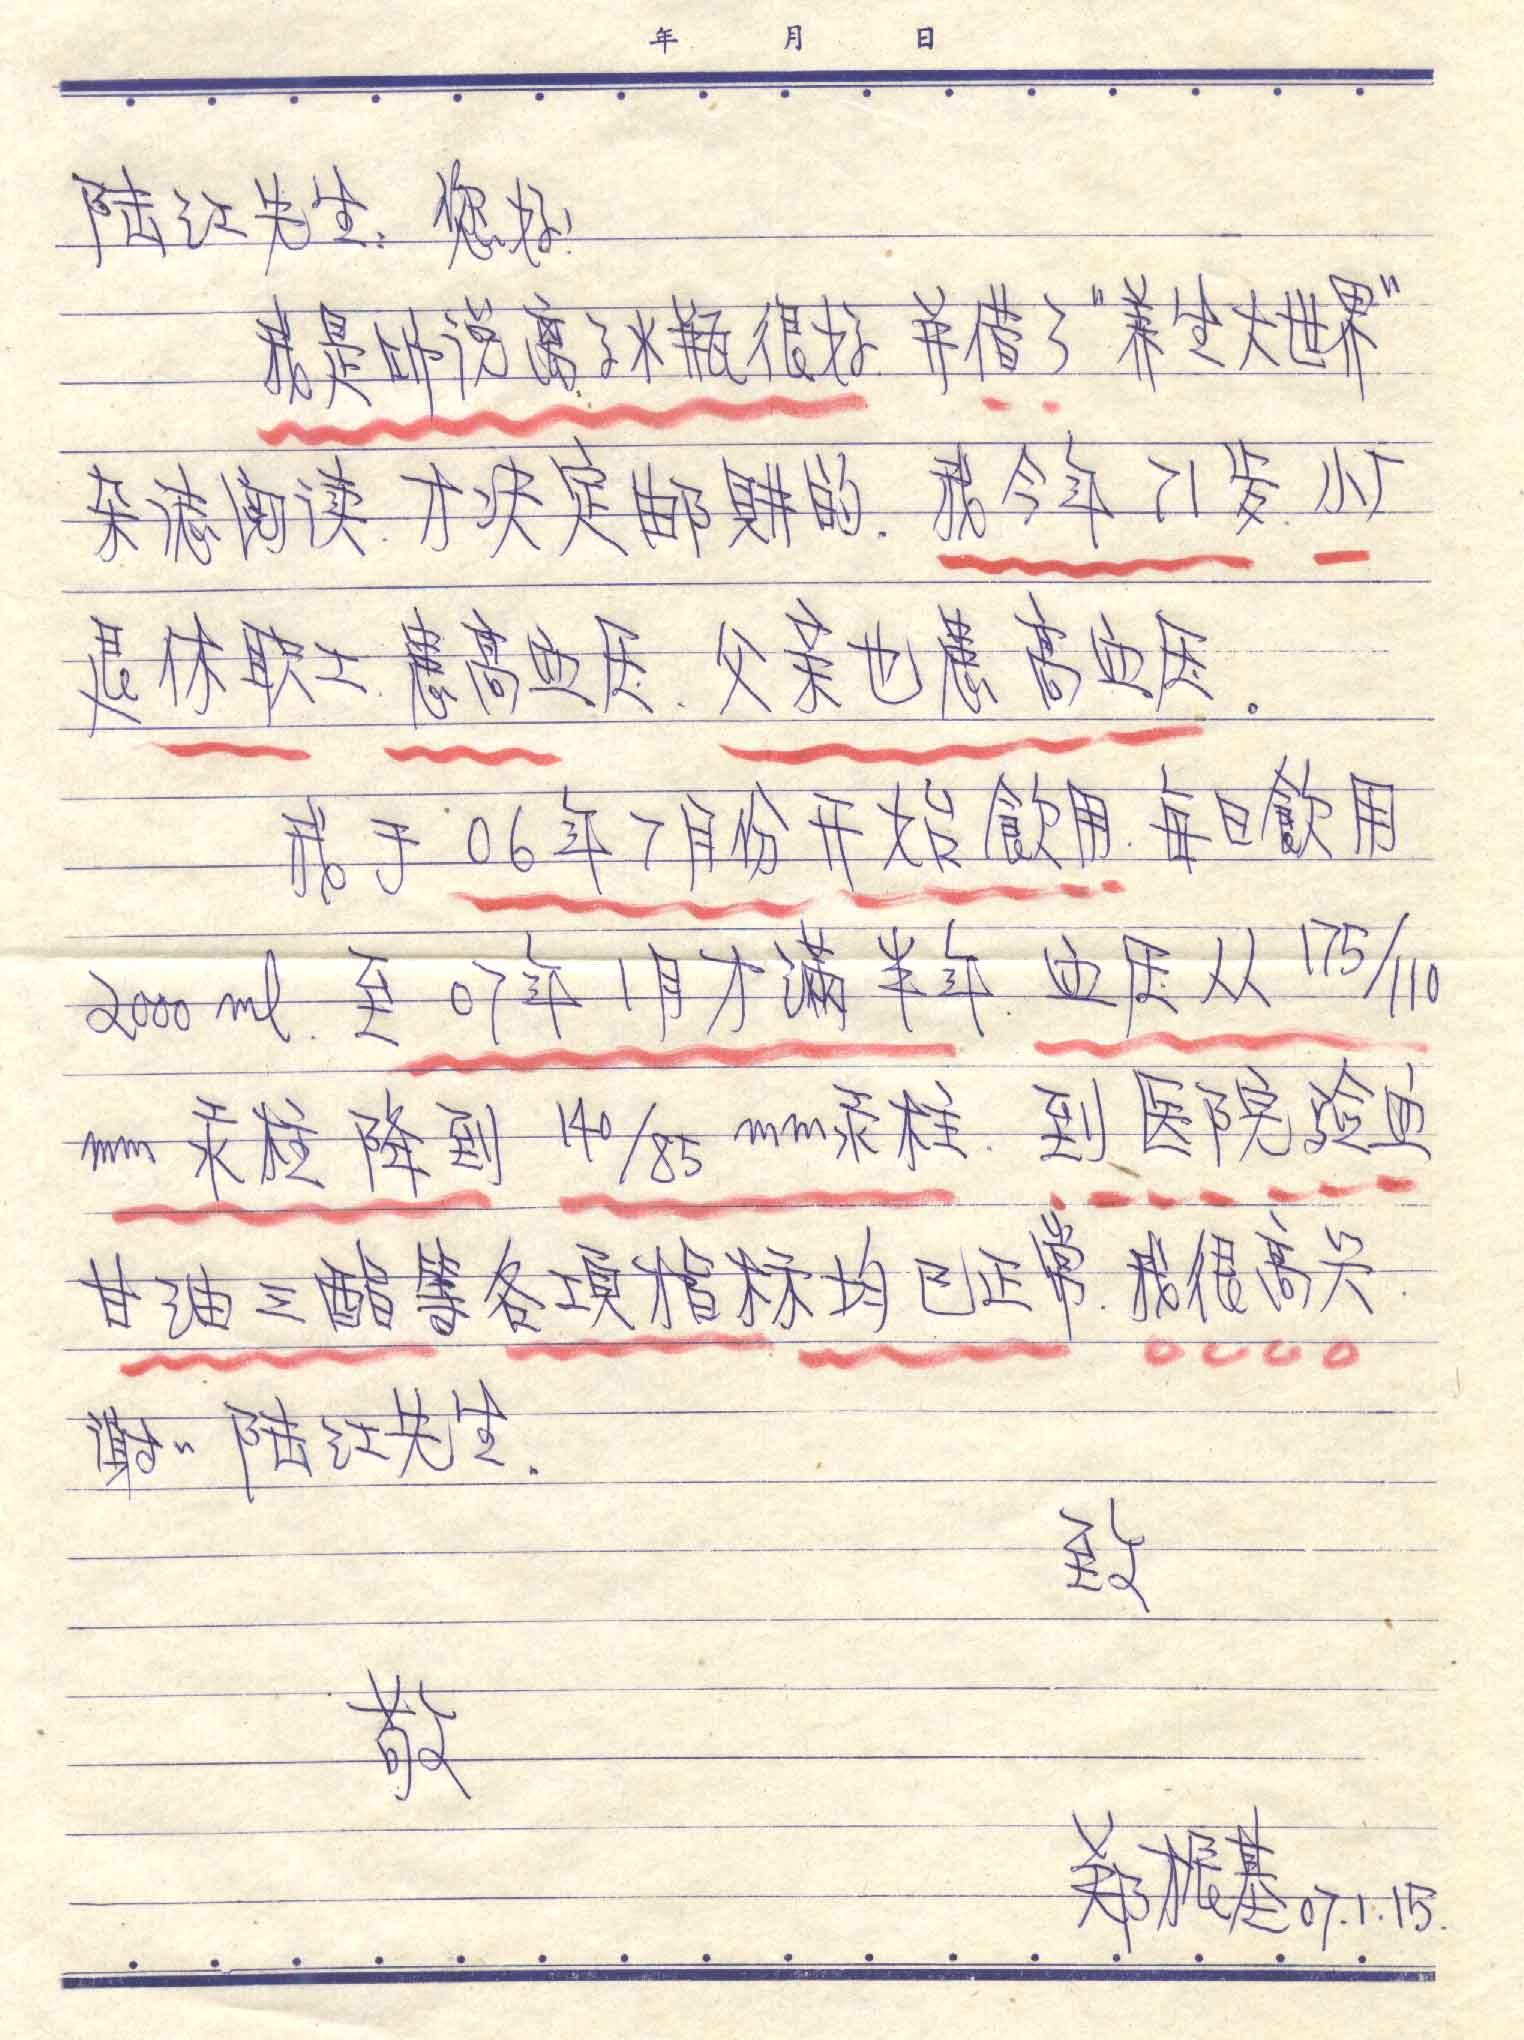 年 月 日
陆江先生：您好！
我是听说离子水瓶很好 并借了"养生大世界"
杂志阅读.才决定邮购的.我今年71岁.小厂
退休职工.患高血压.父亲也患高血压.
我于06年7月份开始飲用.每日飲用
2000ml.至07年1月才滿半年.血压从175/110
mm汞柱降到140/85mm汞柱.到医院验血
甘油三酯等各項指标均已正常.我很高兴.
謝〃陆江先生.
致
敬
郑振基07.1.15.